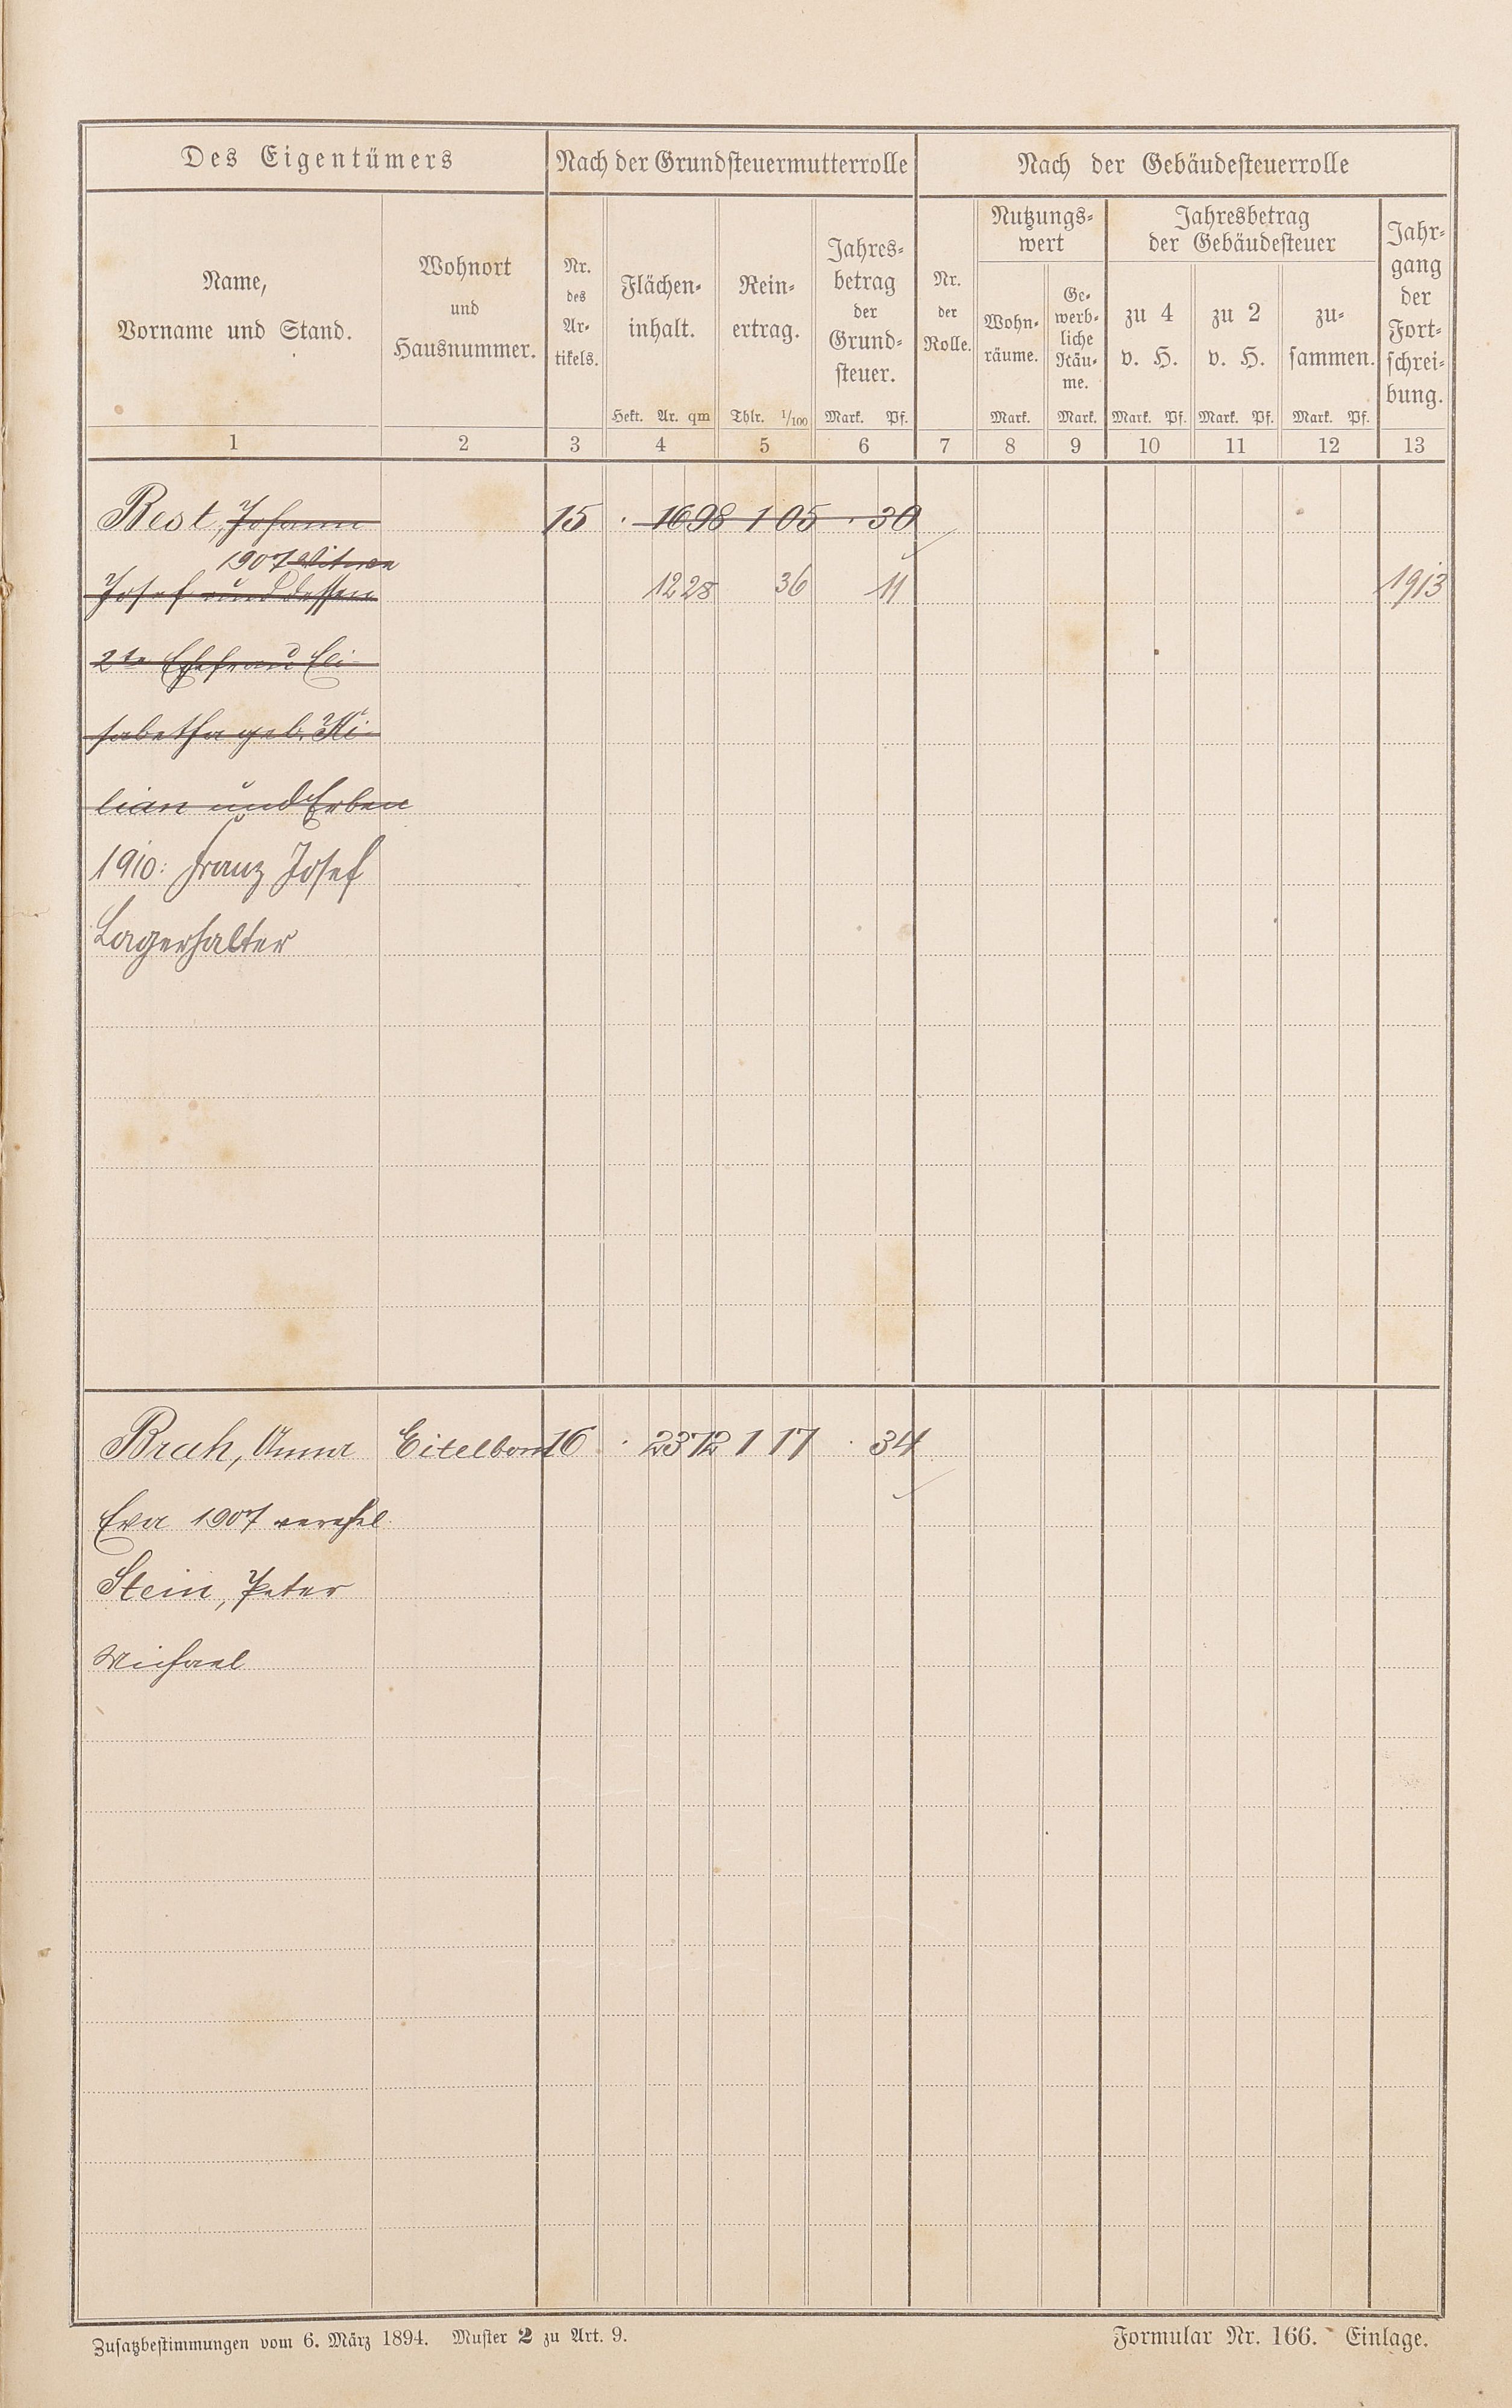 Des Eigentümers
Nach der Grundsteuermutterrolle
Nach der Gebäudesteuerrolle
Name,
Vorname und Stand.
Wohnort
und
Hausnummer.
Nr.
des
Ar-
tikels.
Flächen-
inhalt.
Hekt. Ar. qm
Rein-
ertrag.
Thlr. 1/100
Jahres-
betrag
der
Grund-
steuer.
Mark. Pf.
Nr.
der
Rolle.
Nutzungs-
wert
Wohn-
räume.
Mark.
Ge-
werb-
liche
Räu-
me.
Mark.
Jahresbetrag
der Gebäudesteuer
zu 4
v. H.
Mark. Pf.
zu 2
v. H.
Mark. Pf.
zu-
sammen.
Mark. Pf.
Jahr-
gang
der
Fort-
schrei-
bung.
1 2 3 4 5 6 7 8 9 10 11 12 13
Best, Johann 15 . 16 98 1 05 . 30
1907 Witwe
Josef und dessen 12 28 36 11 1913
2te Ehefrau Eli-
sabetha geb. Ki-
lian und Erben
1910: Franz Josef
Lagerhalter
Brah, Anna Eitelborn 16 . 23 72 1 17 . 34
Eva 1907 verehel.
Stein, Peter
Michael
Zusatzbestimmungen vom 6. März 1894. Muster 2 zu Art. 9.
Formular Nr. 166. Einlage.